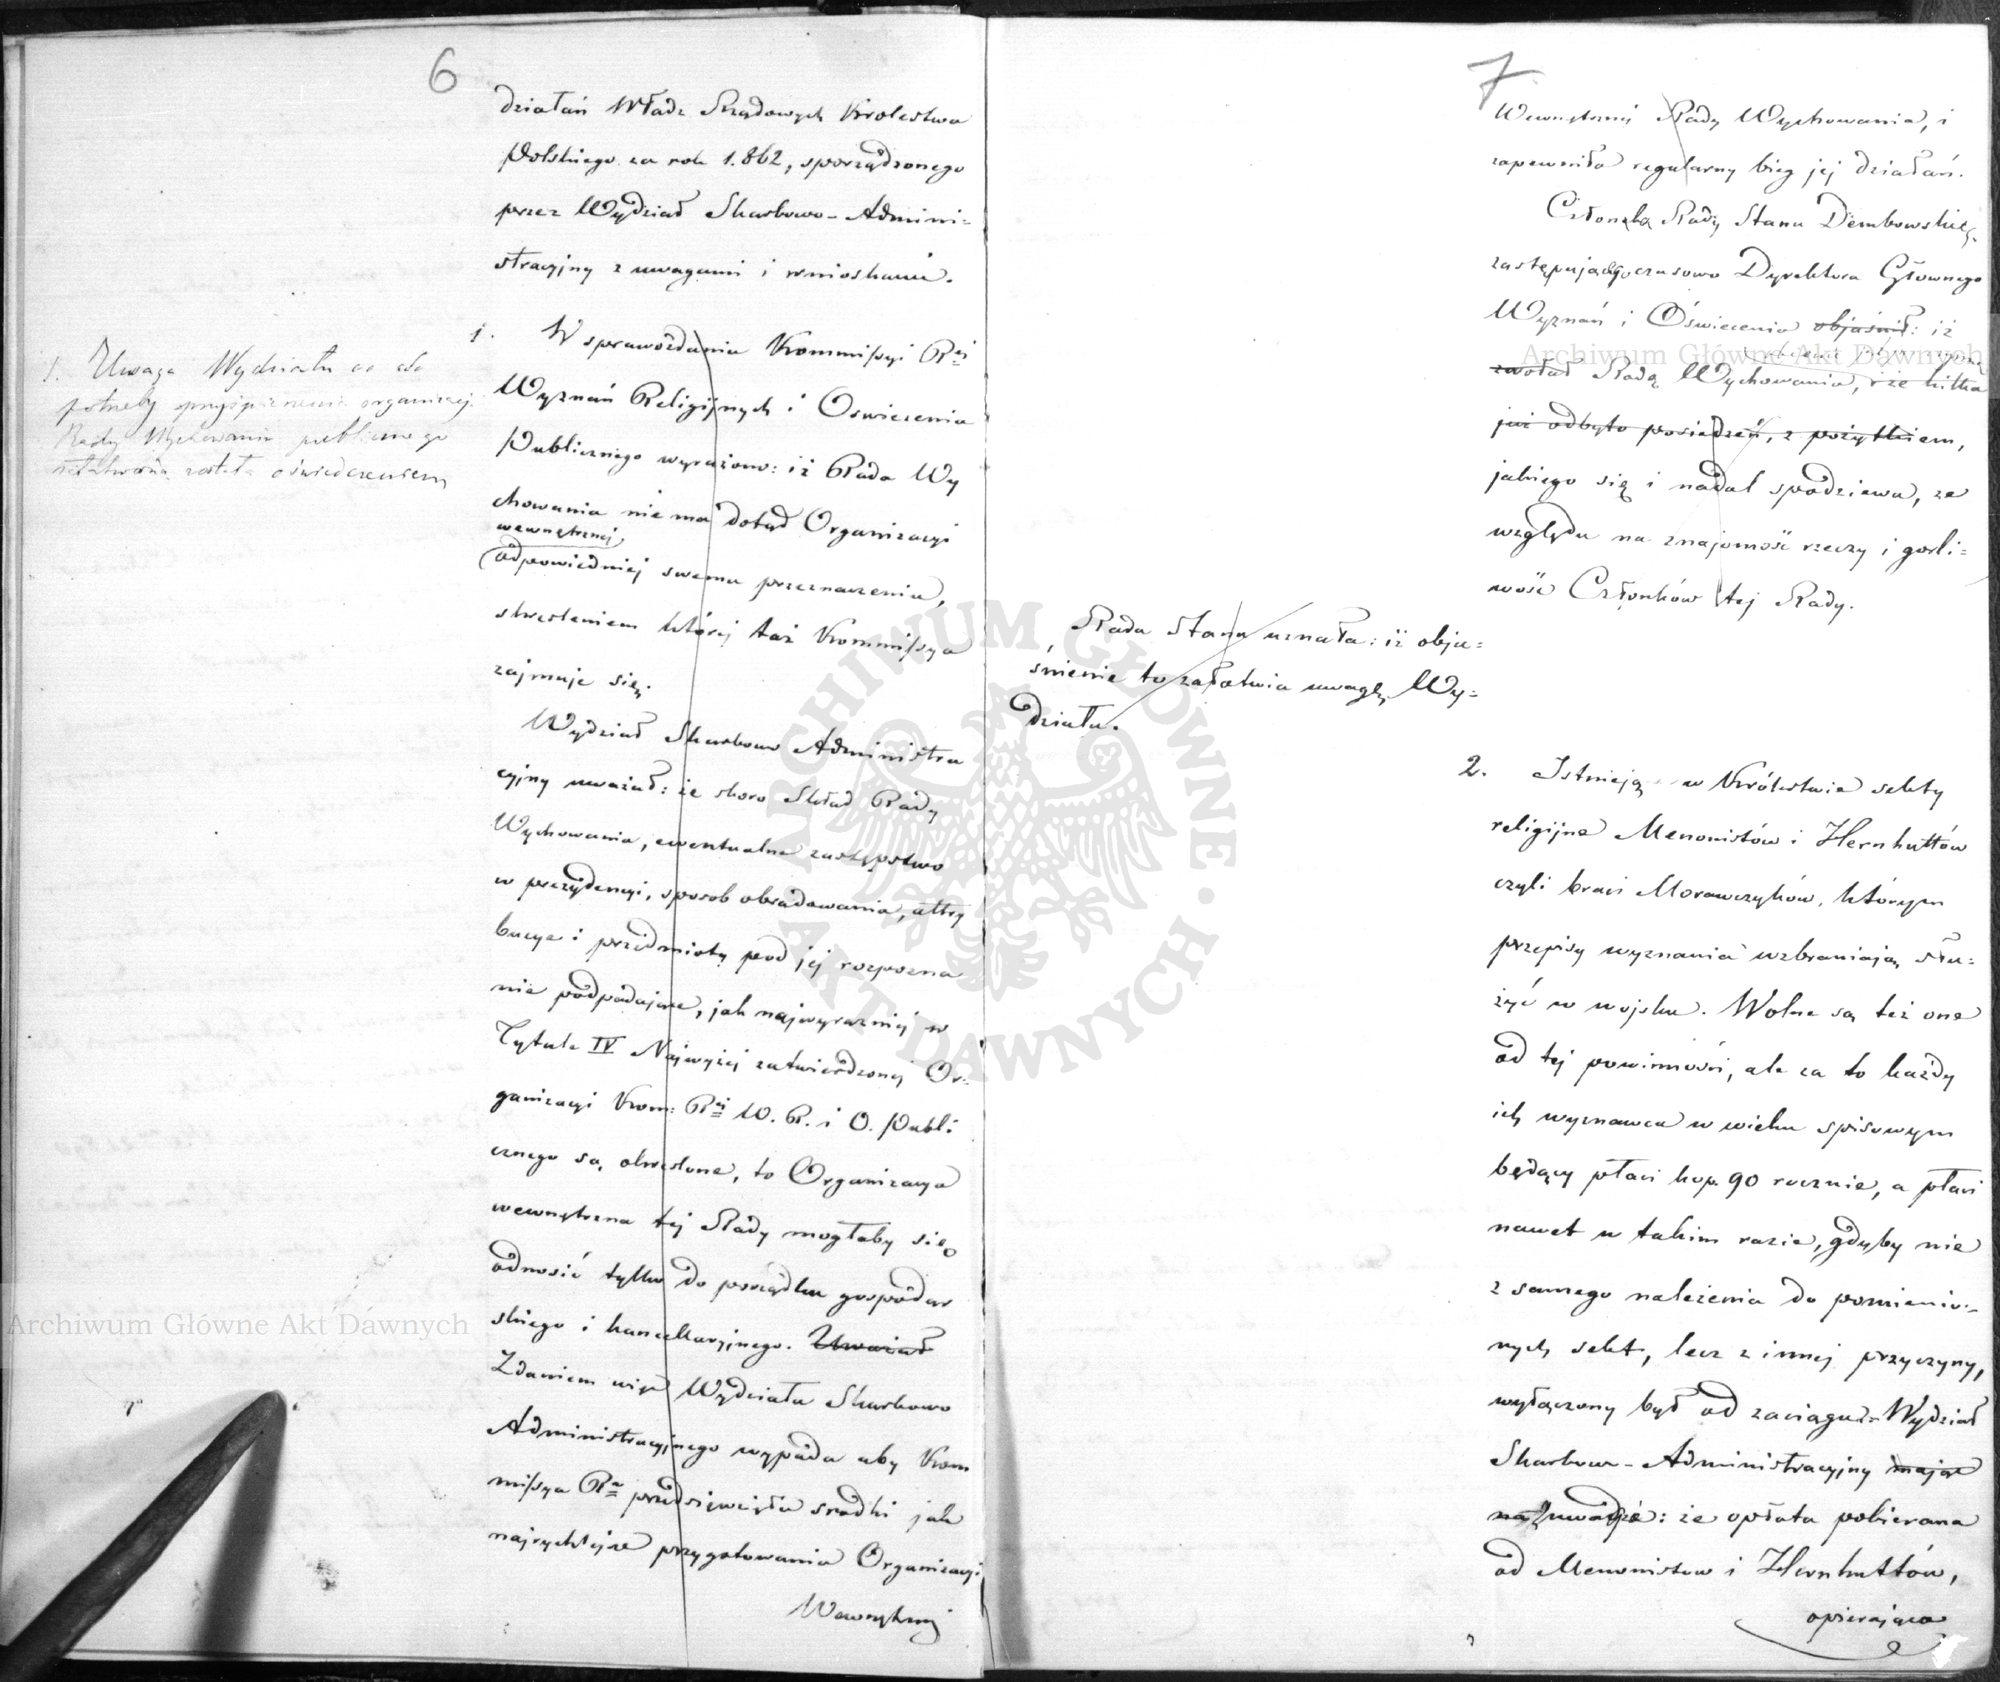 6
działań Władz Rządowych Krolestwa
Polskiego za rok 1.862, sporządzonego
przez Wydział Skarbowo-Admini-
stracyjny z uwagami i wnioskami.
1. W sprawozdaniu Kommissyi Rej
Wyznań Religijnych i Oswiecenia
Publicznego wyrażono: iż Rada Wy
chowania nie ma dotąd Organizacyi
wewnętrznej
odpowiedniej swemu przeznaczeniu,
skresleniem której taż Kommissya
zajmuje się.
Wydział Skarbowo Administra
cyjny uważał: że skoro Skład Rady
Wychowania, ewentualne zastępstwo
w prezydencyi, sposob obradowania, attry
bucye i przedmioty pod jej rozpozna
nie podpadające, jak najwyrazniej w
Tytule IV Najwyżej zatwierdzonej Or-
ganizacyi Kom: Rej W. R. i O. Publi
cznego są okreslone, to Organizacya
wewnętrzna tej Rady mogłaby się
odnosić tylko do porządku gospodar
skiego i kancellaryjnego. Uważał
Zdaniem więc Wydziału Skarbowo
Administracyjnego wypada aby Kom
missya Ra przedsięwzięła srodki jak
najrychlejsze przygotowania Organizacyi
Wewnętrznej
1. Uwaga Wydziału co do
potrzeby przyśpieszenia organizacji
Rady Wychowania publicznego
załatwioną została oświadczeniem
7
Wewnętrznej Rady Wychowania, i
zapewniła regularny bieg jej działań.
Członek Rady Stanu Dembowski
zastępujący czasowo Dyrektora Głownego
Wyznań i Oświecenia objaśnił: iż
zwołał Radę Wychowania, i że kilka
już odbyto posiedzeń, z pożytkiem,
jakiego się i nadal spodziewa, ze
względu na znajomość rzeczy i gorli-
wość Członków tej Rady.
Rada Stanu uznała: iż obja-
śnienie to załatwia uwagę Wy-
działu.
2. Istnieją w Królestwie sekty
religijne Menonistów i Hernhuttów
czyli braci Morawczyków, którym
przepisy wyznania wzbraniają słu-
żyć w wojsku. Wolne są też one
od tej powinności, ale za to każdy
ich wyznawca w wieku spisowym
będący płaci kop. 90 rocznie, a płaci
nawet w takim razie, gdyby nie
z samego należenia do pomienio-
nych sekt, lecz z innej przyczyny,
wyłączony był od zaciągu. Wydział
Skarbowo-Administracyjny mając
na uwadze: że opłata pobierana
od Menonistow i Hernhuttów,
opierająca
Archiwum Główne Akt Dawnych
Archiwum Główne Akt Dawnych
ARCHIWUM GŁÓWNE · AKT DAWNYCH ·